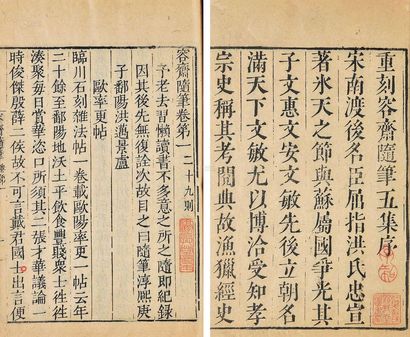 重刻容齋隨筆五集序
宋南渡後名臣屈指洪氏忠宣
著氷天之節與蘇屬國爭光其
子文惠文安文敏先後立朝名
滿天下文敏尤以博洽受知孝
宗史稱其考閱典故漁獵經史
容齋隨筆卷第一 二十九則
予老去習懶讀書不多意之所之隨即紀錄
因其後先無復詮次故目之曰隨筆淳熙庚
子鄱陽洪邁景盧
歐率更帖
臨川石刻雜法帖一卷載歐陽率更一帖云年
二十餘至鄱陽地沃土平飲食豐賤衆士徃徃
湊聚每日賞華恣口所須其二張才華議論一
時俊傑殷薛二侯故不可言戴君國士出言便